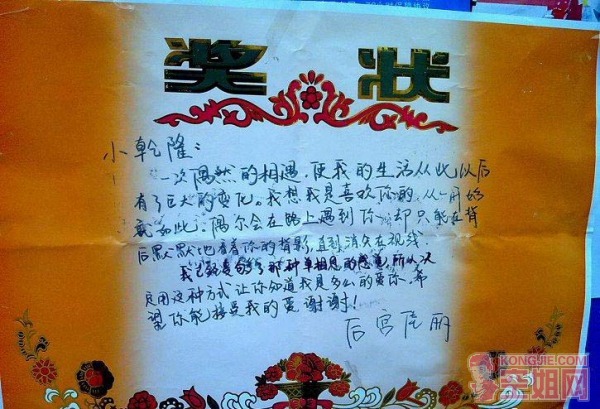 奖状
小乾隆：
一次偶然的相遇，使我的生活从此以后
有了巨大的变化。我想我是喜欢你的，从一开始
就如此，偶尔会在路上遇到你，却只能在背
后默默地看着你的背影，直到消失在视线。
我已经受够了那种单相思的感觉，所以决
定用这种方式让你知道我是多么的爱你，希
望你能接受我的爱，谢谢！
后宫佳丽
KONGJIE.COM
空姐网